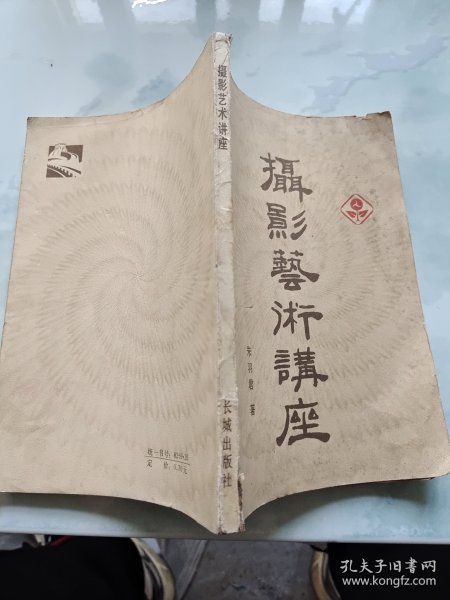 攝影藝術講座
一
朱羽君 著
摄影艺术讲座
长城出版社
统一书号：
定 价：0.70元
孔夫子旧书网
www.kongfz.com